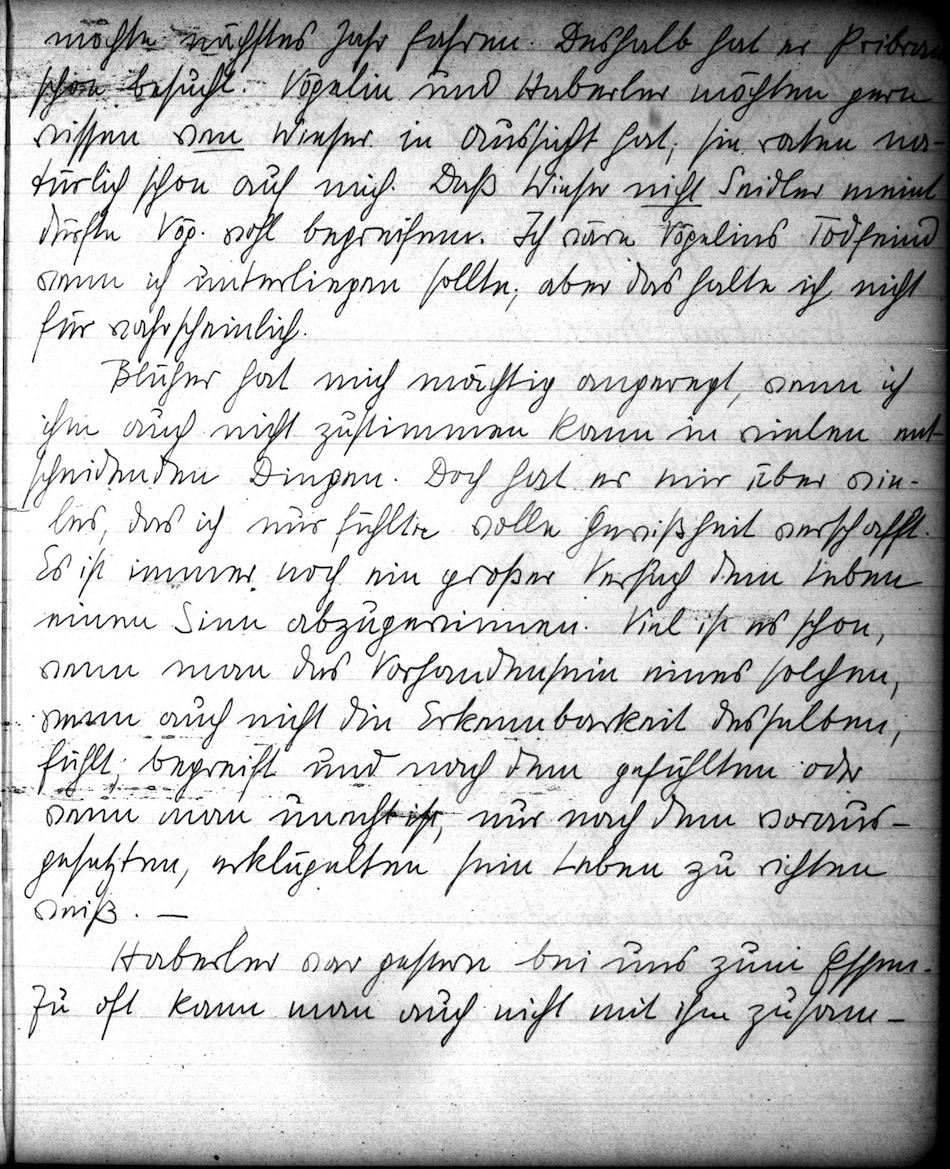 möchte nächstes Jahr fahren. Deshalb hat er Pribram
schon besucht. Vögelin und Haberler möchten gern
wissen wen Wieser in Aussicht hat; sie raten na-
türlich schon auf mich. Daß Wieser nicht Seidler meint
dürfte Vög. wohl begreifen. Ich wäre Vögelins Todfeind
wenn ich unterliegen sollte; aber das halte ich nicht
für wahrscheinlich.
Blüher hat mich mächtig angeregt, wenn ich
ihm auch nicht zustimmen kann in vielen ent-
scheidenden Dingen. Doch hat er mir über vie-
les, das ich nur fühlte volle Gewißheit verschafft.
Es ist immer noch ein großer Versuch dem Leben
einen Sinn abzugewinnen. Viel ist es schon,
wenn man das Vorhandensein eines solchen,
wenn auch nicht die Erkennbarkeit desselben,
fühlt, begreift und nach dem gefühlten oder
wenn man unecht ist, nur nach dem voraus-
gesetzten, erklügelten sein Leben zu richten
weiß. —
Haberler war gestern bei uns zum Essen.
Zu oft kann man auch nicht mit ihm zusam-